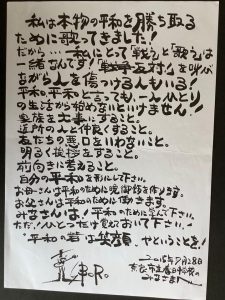 私は本物の平和を勝ち取る
ために歌ってきました!
だから…私にとって「戦う」と「歌う」は
一緒なんです!「戦争反対」を叫び
ながら人を傷つける人もいる!
平和、平和と言っても、一人ひとり
の生活から始めないといけません!!
家族を大事にすること。
近所の人と仲良くすること。
友だちの悪口をいわないこと。
明るく挨拶をすること。
前向きに考えること。
自分の平和を形にして下さい。
お母さんは平和のために晩御飯を作ります。
お父さんは平和のために働きます。
みなさんは、平和のために学んで下さい。
ただ!ひとつだけ覚えておいて下さい!
"平和の君は笑顔"やということを!
二〇一五年7月28日
市立春日小学校の
みなさまへ